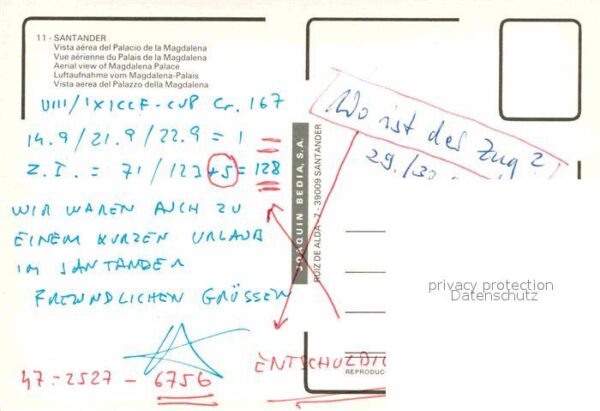 11 - SANTANDER
Vista aérea del Palacio de la Magdalena
Vue aérienne du Palais de la Magdalena
Aerial view of Magdalena Palace
Luftaufnahme vom Magdalena-Palais
Vista aerea del Palazzo della Magdalena
VIII/IXICCF-CUP Gr. 167
14.9/21.9/22.9 = 1
Z.I. = 71/123+5=128
WIR WAREN AUCH ZU
EINEM KURZEN URLAUB
IM SANTANDER
FREUNDLICHEN GRÜSSEN
47=2527 - 6756
JOAQUIN BEDIA, S.A.
RUIZ DE ALDA, 7 - 39009 SANTANDER
Wo ist des Zug?
29./30
privacy protection
Datenschutz
REPRODUC